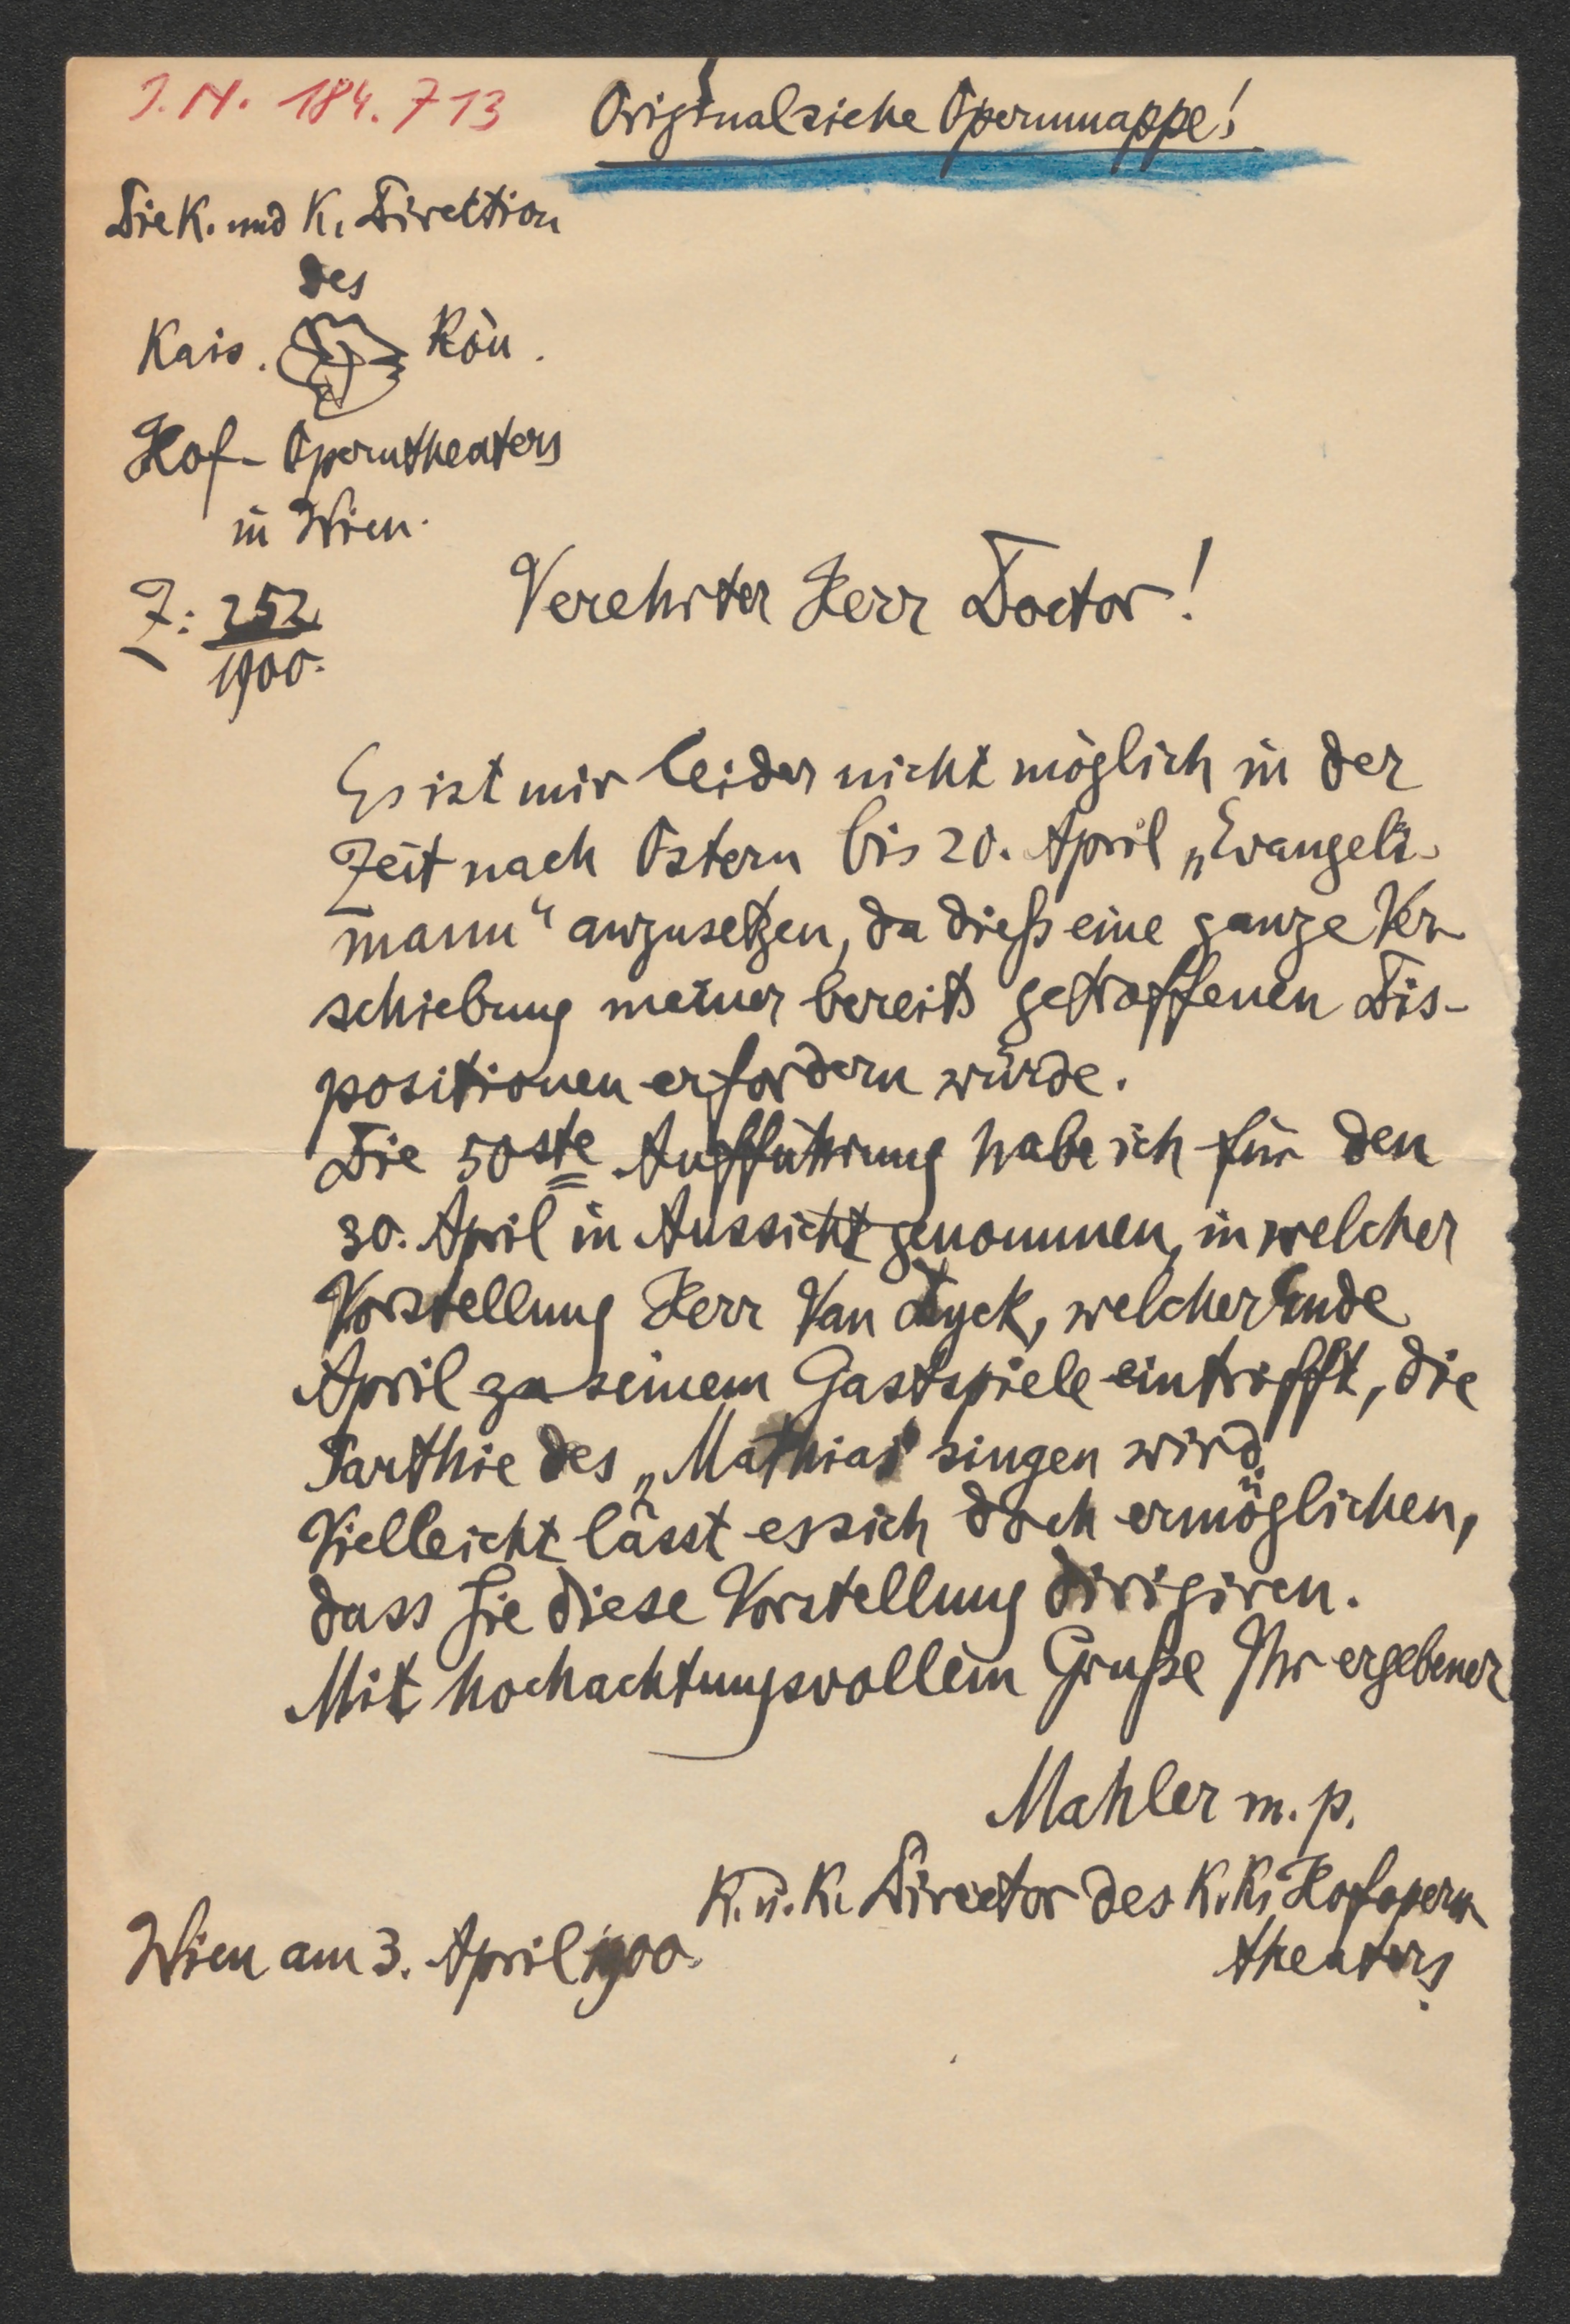 J.N. 184.713
Original siehe Opernmappe!
Die K. und K. Direktion
des
Kais. Kön.
Hof-Operntheaters
in Wien.
Z: 252
1900.
Verehrter Herr Doctor!
Es ist mir leider nicht möglich in der
Zeit nach Ostern bis 20. April „Evangeli-
mann“ anzusetzen, da dieß eine ganze Ver-
schiebung meiner bereits getroffenen Dis-
positionen erfordern würde.
Die 50ste Aufführung habe ich für den
30. April in Aussicht genommen, in welcher
Vorstellung Herr Van Dyck, welcher Ende
April zu seinem Gastspiele eintrifft, die
Parthie des „Mathias“ singen wird.
Vielleicht lässt es sich doch ermöglichen,
dass Sie diese Vorstellung dirigiren.
Mit hochachtungsvollem Gruße Ihr ergebener
Mahler m. p.
K. u. K. Director des K. K. Hofopern
theaters.
Wien am 3. April 1900.